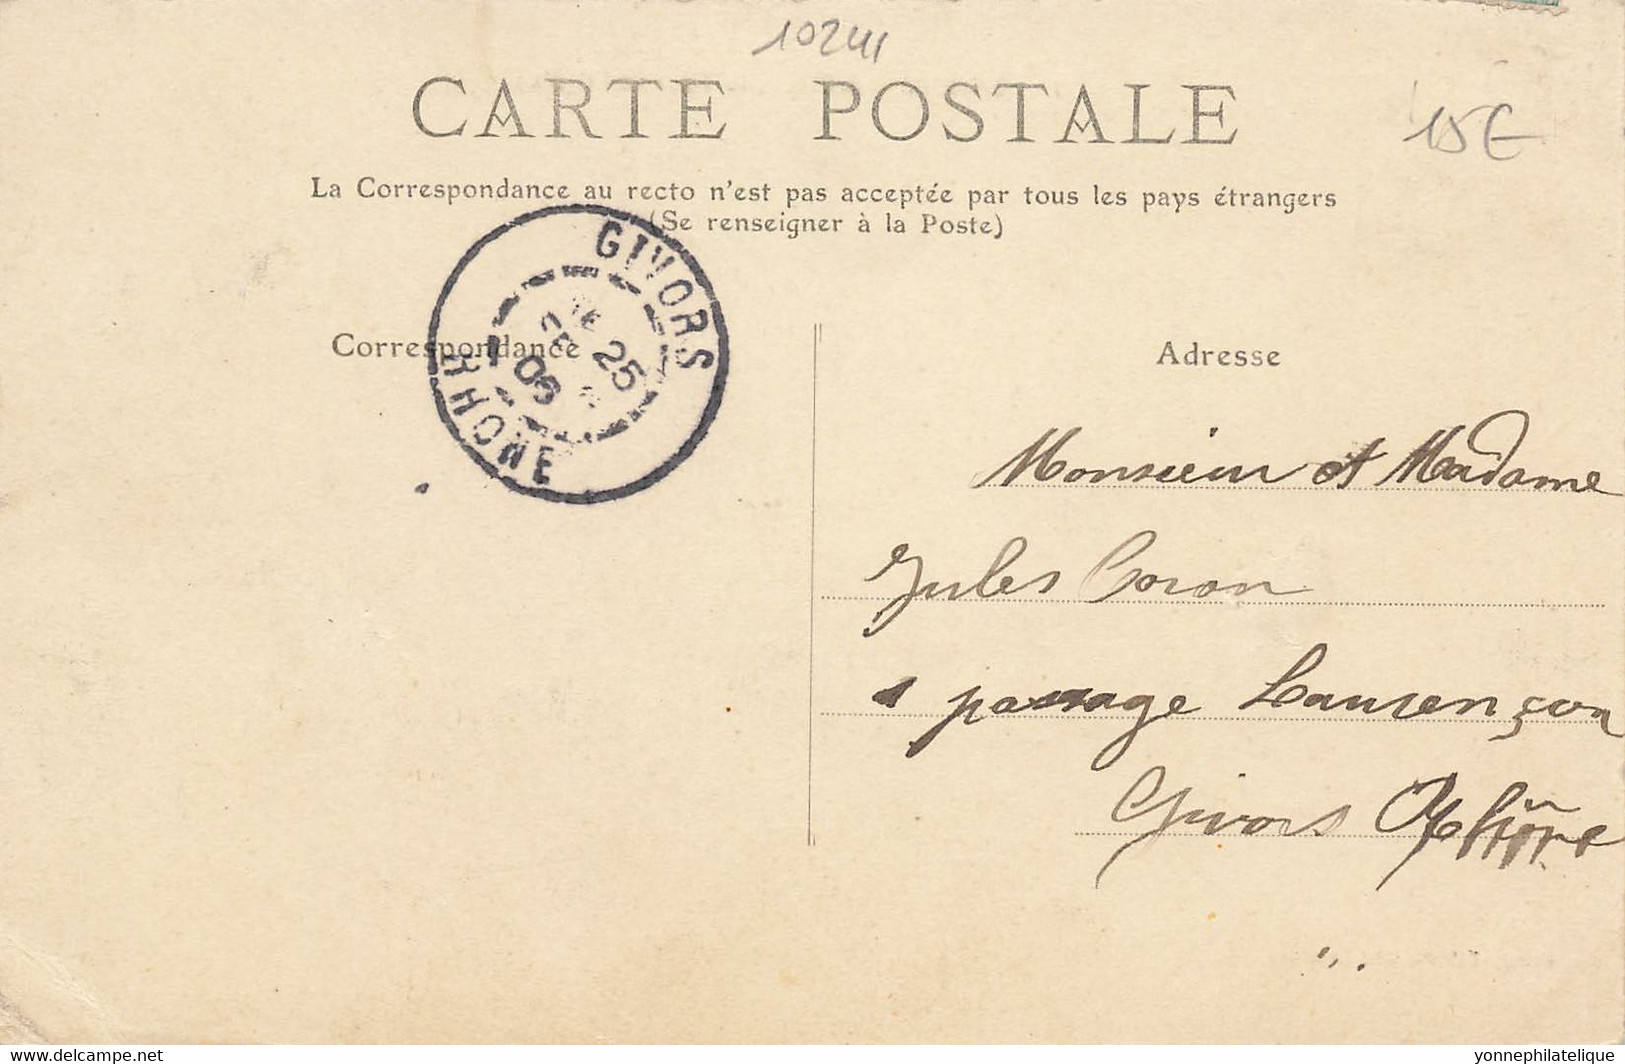 10241
CARTE POSTALE
15€
La Correspondance au recto n'est pas acceptée par tous les pays étrangers
(Se renseigner à la Poste)
GIVORS
25
05
RHONE
Correspondance
Adresse
Monsieur et Madame
Jules Coron
passage
Givors Rhône
Delcampe.net
yonnephilatelique